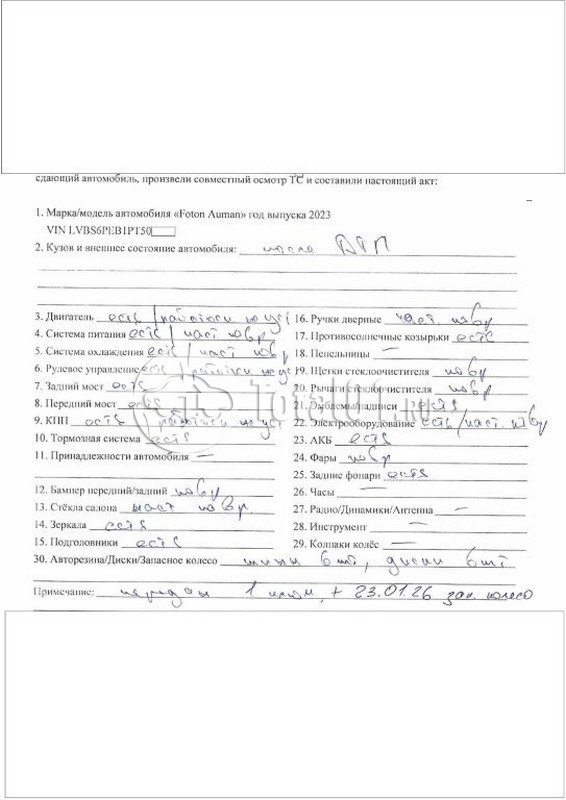 сдающий автомобиль, произвели совместный осмотр ТС и составили настоящий акт:
1. Марка/модель автомобиля «Foton Auman» год выпуска 2023
VIN LVBS6PEB1PT50
2. Кузов и внешнее состояние автомобиля: после ДТП
3. Двигатель есть / работосп не уст
4. Система питания есть / част повр
5. Система охлаждения есть / част повр
6. Рулевое управление есть / работосп не уст
7. Задний мост есть
8. Передний мост есть
9. КПП есть работосп не уст
10. Тормозная система есть
11. Принадлежности автомобиля —
12. Бампер передний/задний повр
13. Стёкла салона част повр.
14. Зеркала есть
15. Подголовники есть
16. Ручки дверные част повр
17. Противосолнечные козырьки есть
18. Пепельницы —
19. Щетки стеклоочистителя повр
20. Рычаги стеклоочистителя повр
21. Эмблемы/надписи есть
22. Электрооборудование есть/част повр
23. АКБ есть
24. Фары повр
25. Задние фонари есть
26. Часы —
27. Радио/Динамики/Антенна —
28. Инструмент —
29. Колпаки колёс —
30. Авторезина/Диски/Запасное колесо шины 6 шт, диски 6 шт
Примечание: передан 1 ключ, + 23.01.26 зап. колесо
Total01.RU